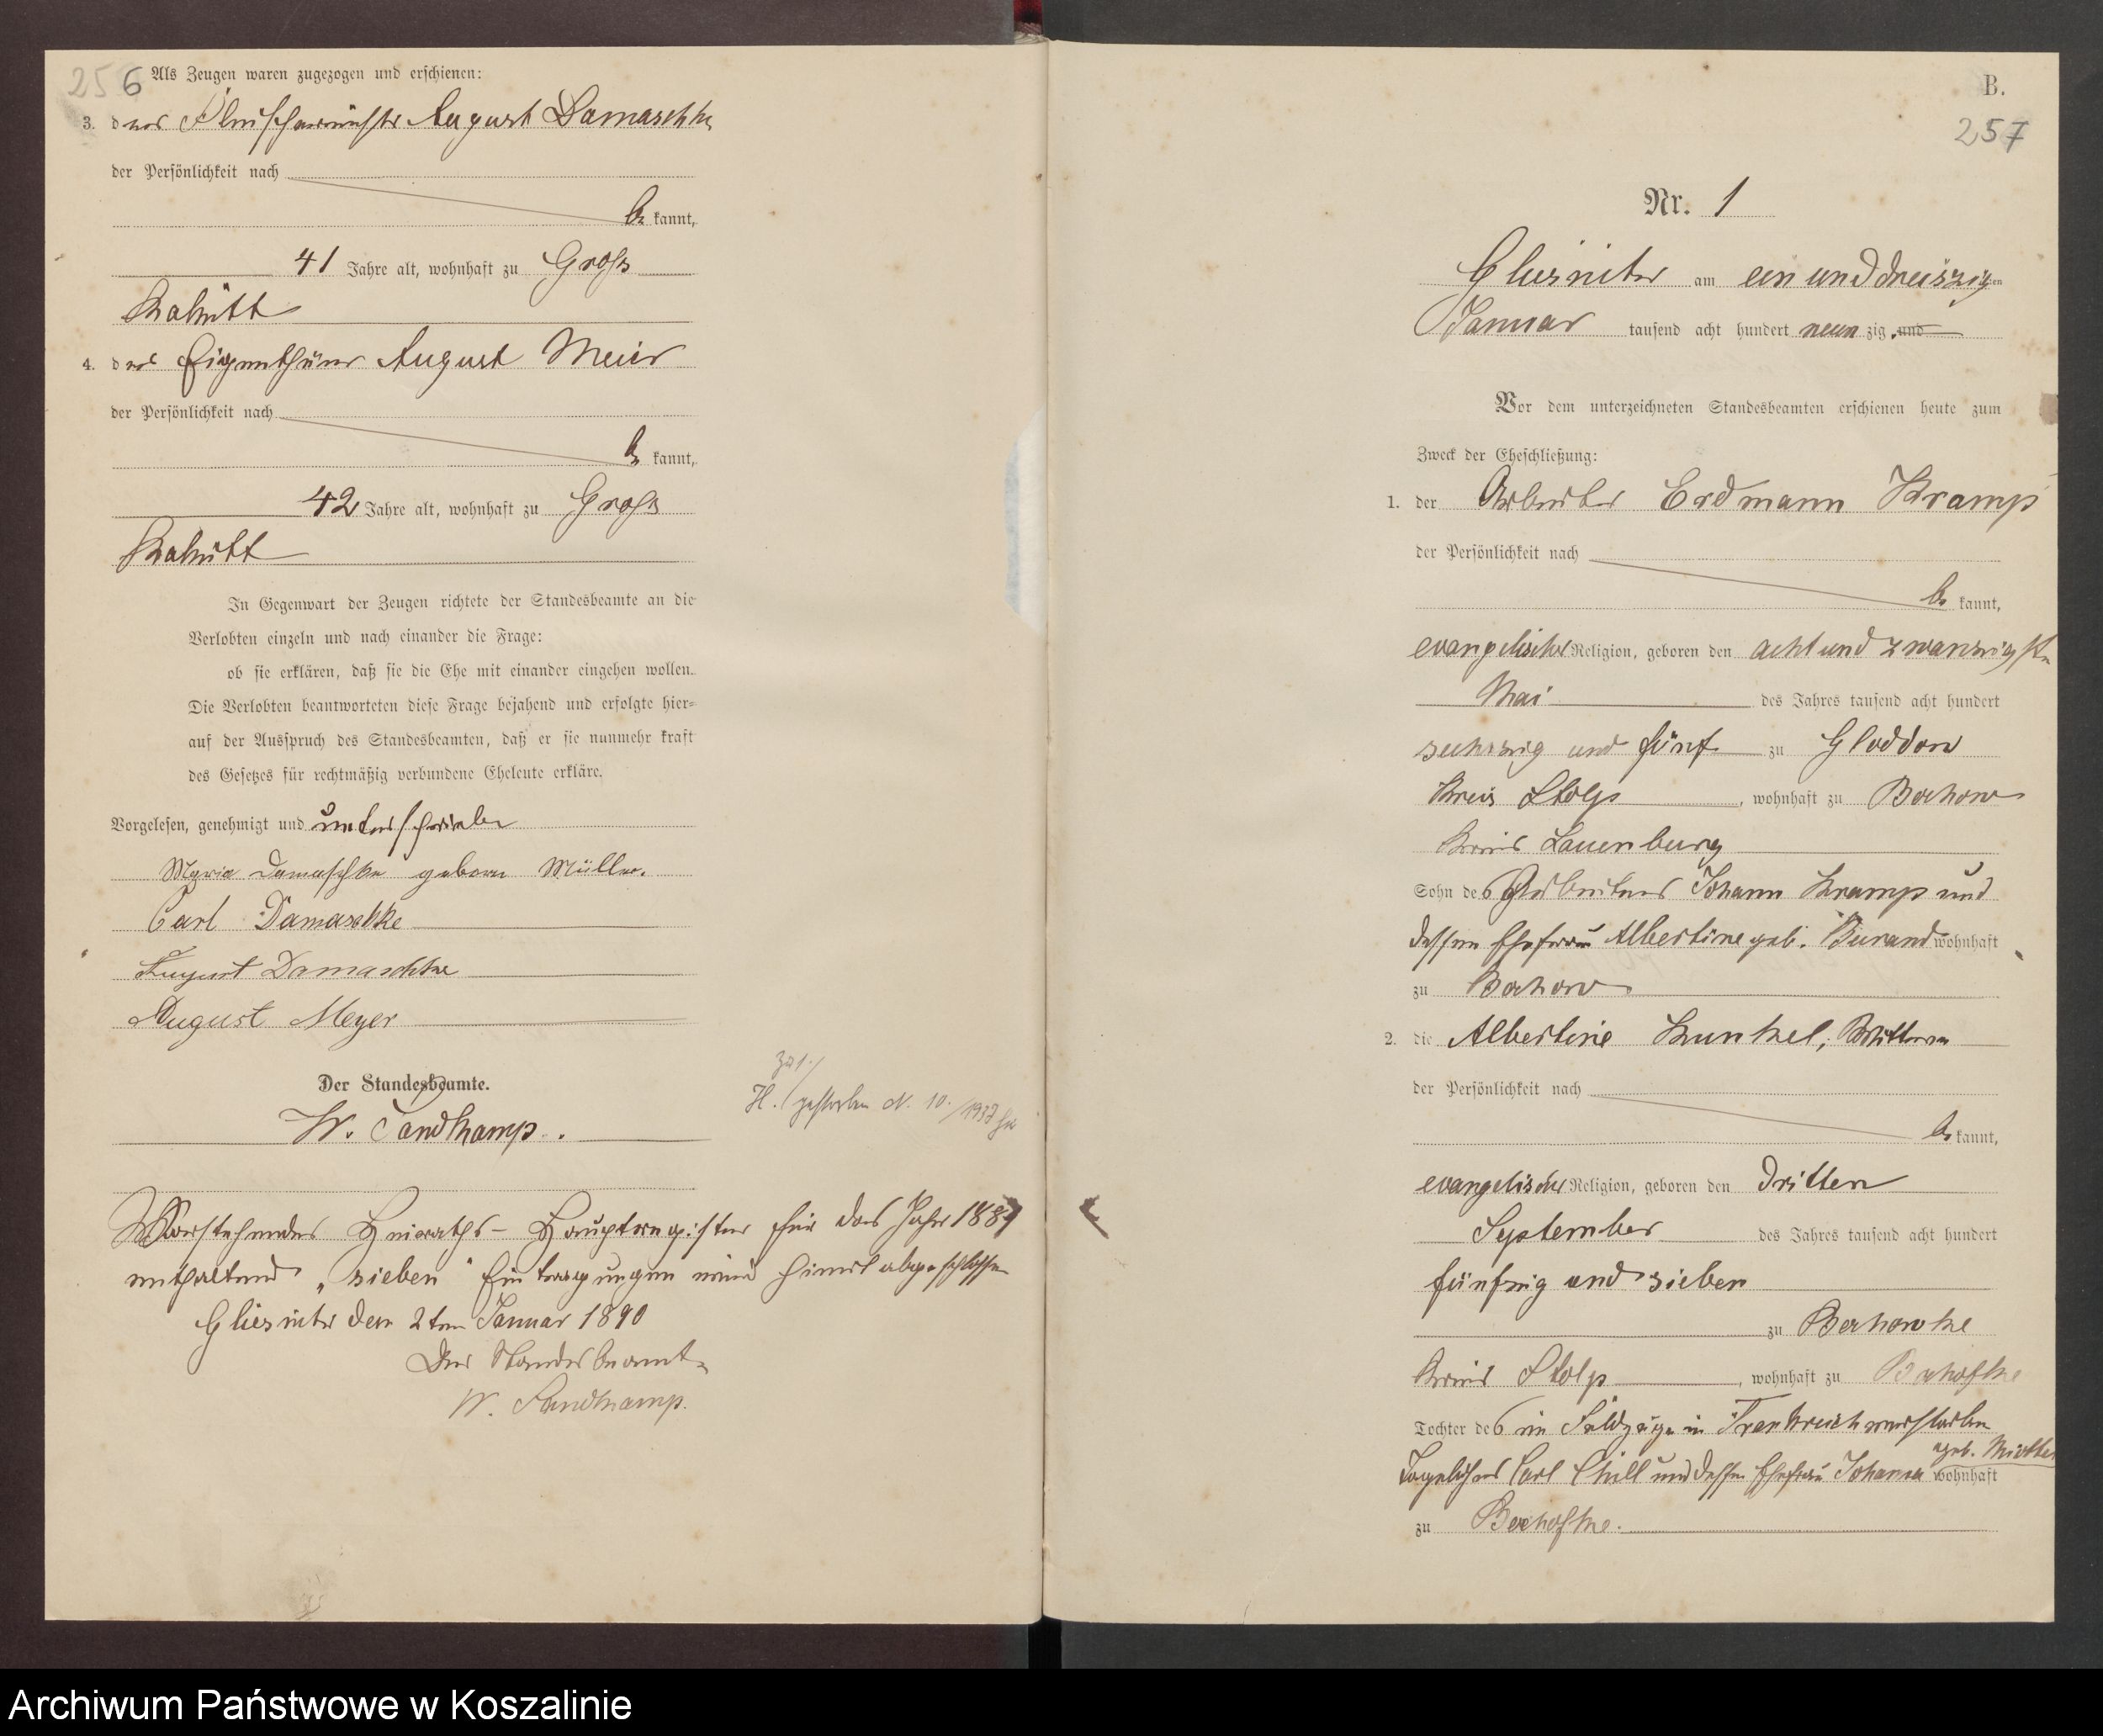 256
Als Zeugen waren zugezogen und erschienen:
3. der Fleischermeister August Damaschke
der Persönlichkeit nach
be kannt,
41 Jahre alt, wohnhaft zu Gross
Rakitt
4. der Eigenthümer August Meier
der Persönlichkeit nach
be kannt,
42 Jahre alt, wohnhaft zu Gross
Rakitt
In Gegenwart der Zeugen richtete der Standesbeamte an die
Verlobten einzeln und nach einander die Frage:
ob sie erklären, daß sie die Ehe mit einander eingehen wollen.
Die Verlobten beantworteten diese Frage bejahend und erfolgte hier-
auf der Ausspruch des Standesbeamten, daß er sie nunmehr kraft
des Gesetzes für rechtmäßig verbundene Eheleute erkläre.
Vorgelesen, genehmigt und unterschrieben
Maria Damaschke geboren Müller.
Carl Damaschke
August Damaschke
August Meyer
Der Standesbeamte.
W. Sandkamp.
zu 1.
H. gestorben N. 10./1937
Vorstehendes Heiraths-Hauptregister für das Jahr 1889
enthaltend "sieben" Eintragungen wird hiermit abgeschlossen
Gliesnitz den 2ten Januar 1890
Der Standesbeamte
W. Sandkamp.
B.
257
Nr. 1
Gliesnitz am ein und dreiszigsten
Januar tausend acht hundert neun zig und
Vor dem unterzeichneten Standesbeamten erschienen heute zum
Zweck der Eheschließung:
1. der Arbeiter Erdmann Kramp
der Persönlichkeit nach
be kannt,
evangelischer Religion, geboren den acht und zwanzigsten
Mai des Jahres tausend acht hundert
sechszig und fünf zu Gloddow
Kreis Stolp, wohnhaft zu Bochow
Kreis Lauenburg
Sohn des Arbeiters Johann Kramp und
dessen Ehefrau Albertine geb. Burand wohnhaft
zu Bochow
2. die Albertine Kunkel, Wittwe
der Persönlichkeit nach
be kannt,
evangelischer Religion, geboren den dritten
September des Jahres tausend acht hundert
fünfzig und sieben
zu Bochowke
Kreis Stolp, wohnhaft zu Bochofke
Tochter des im Feldzuge in Frankreich verstorbenen
geb.
Tagelöhner Carl und dessen Ehefrau Johanna wohnhaft
zu Bochofke.
Archiwum Państwowe w Koszalinie